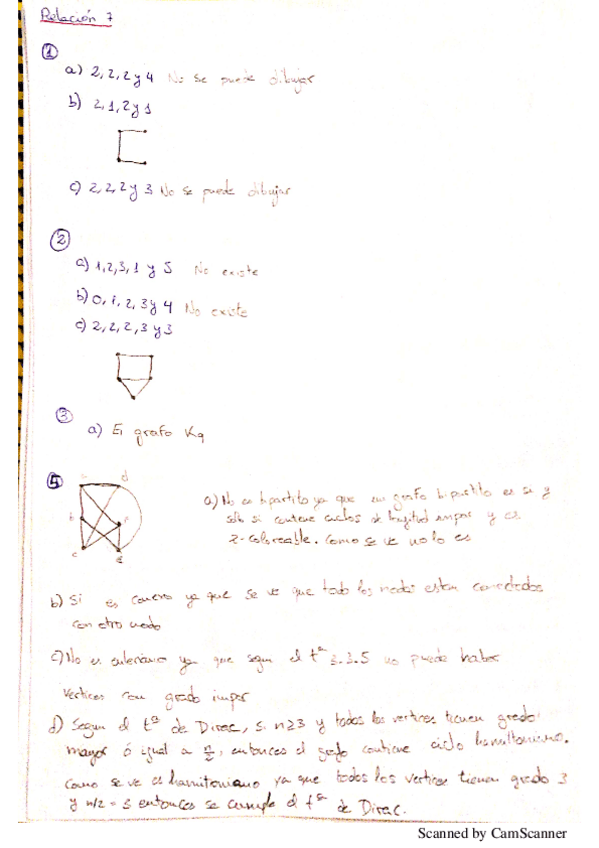 Relación 7
①
a) 2, 2, 2 y 4 No se puede dibujar
b) 2, 1, 2 y 1
c) 2, 2, 2 y 3 No se puede dibujar
②
a) 1, 2, 3, 1 y 5 No existe
b) 0, 1, 2, 3 y 4 No existe
c) 2, 2, 2, 3 y 3
③
a) El grafo K
d
a) No es bipartito ya que un grafo bipartito es si y
solo si contiene ciclos de longitud impar y es
2-coloreable. Como se ve no lo es
b) Si es conexo ya que se ve que todo los nodos estan conectados
con otro nodo
c) No es euleriano ya que segun el tª 3.3.5 no puede haber
vertices con grado impar
d) Segun el tª de Dirac, si n≥3 y todos los vertices tienen grado
mayor ó igual a n/2, entonces el grafo contiene ciclo hamiltoniano.
Como se ve es hamiltoniano ya que todos los vertices tienen grado 3
y n/2 = 3 entonces se cumple el tª de Dirac.
Scanned by CamScanner